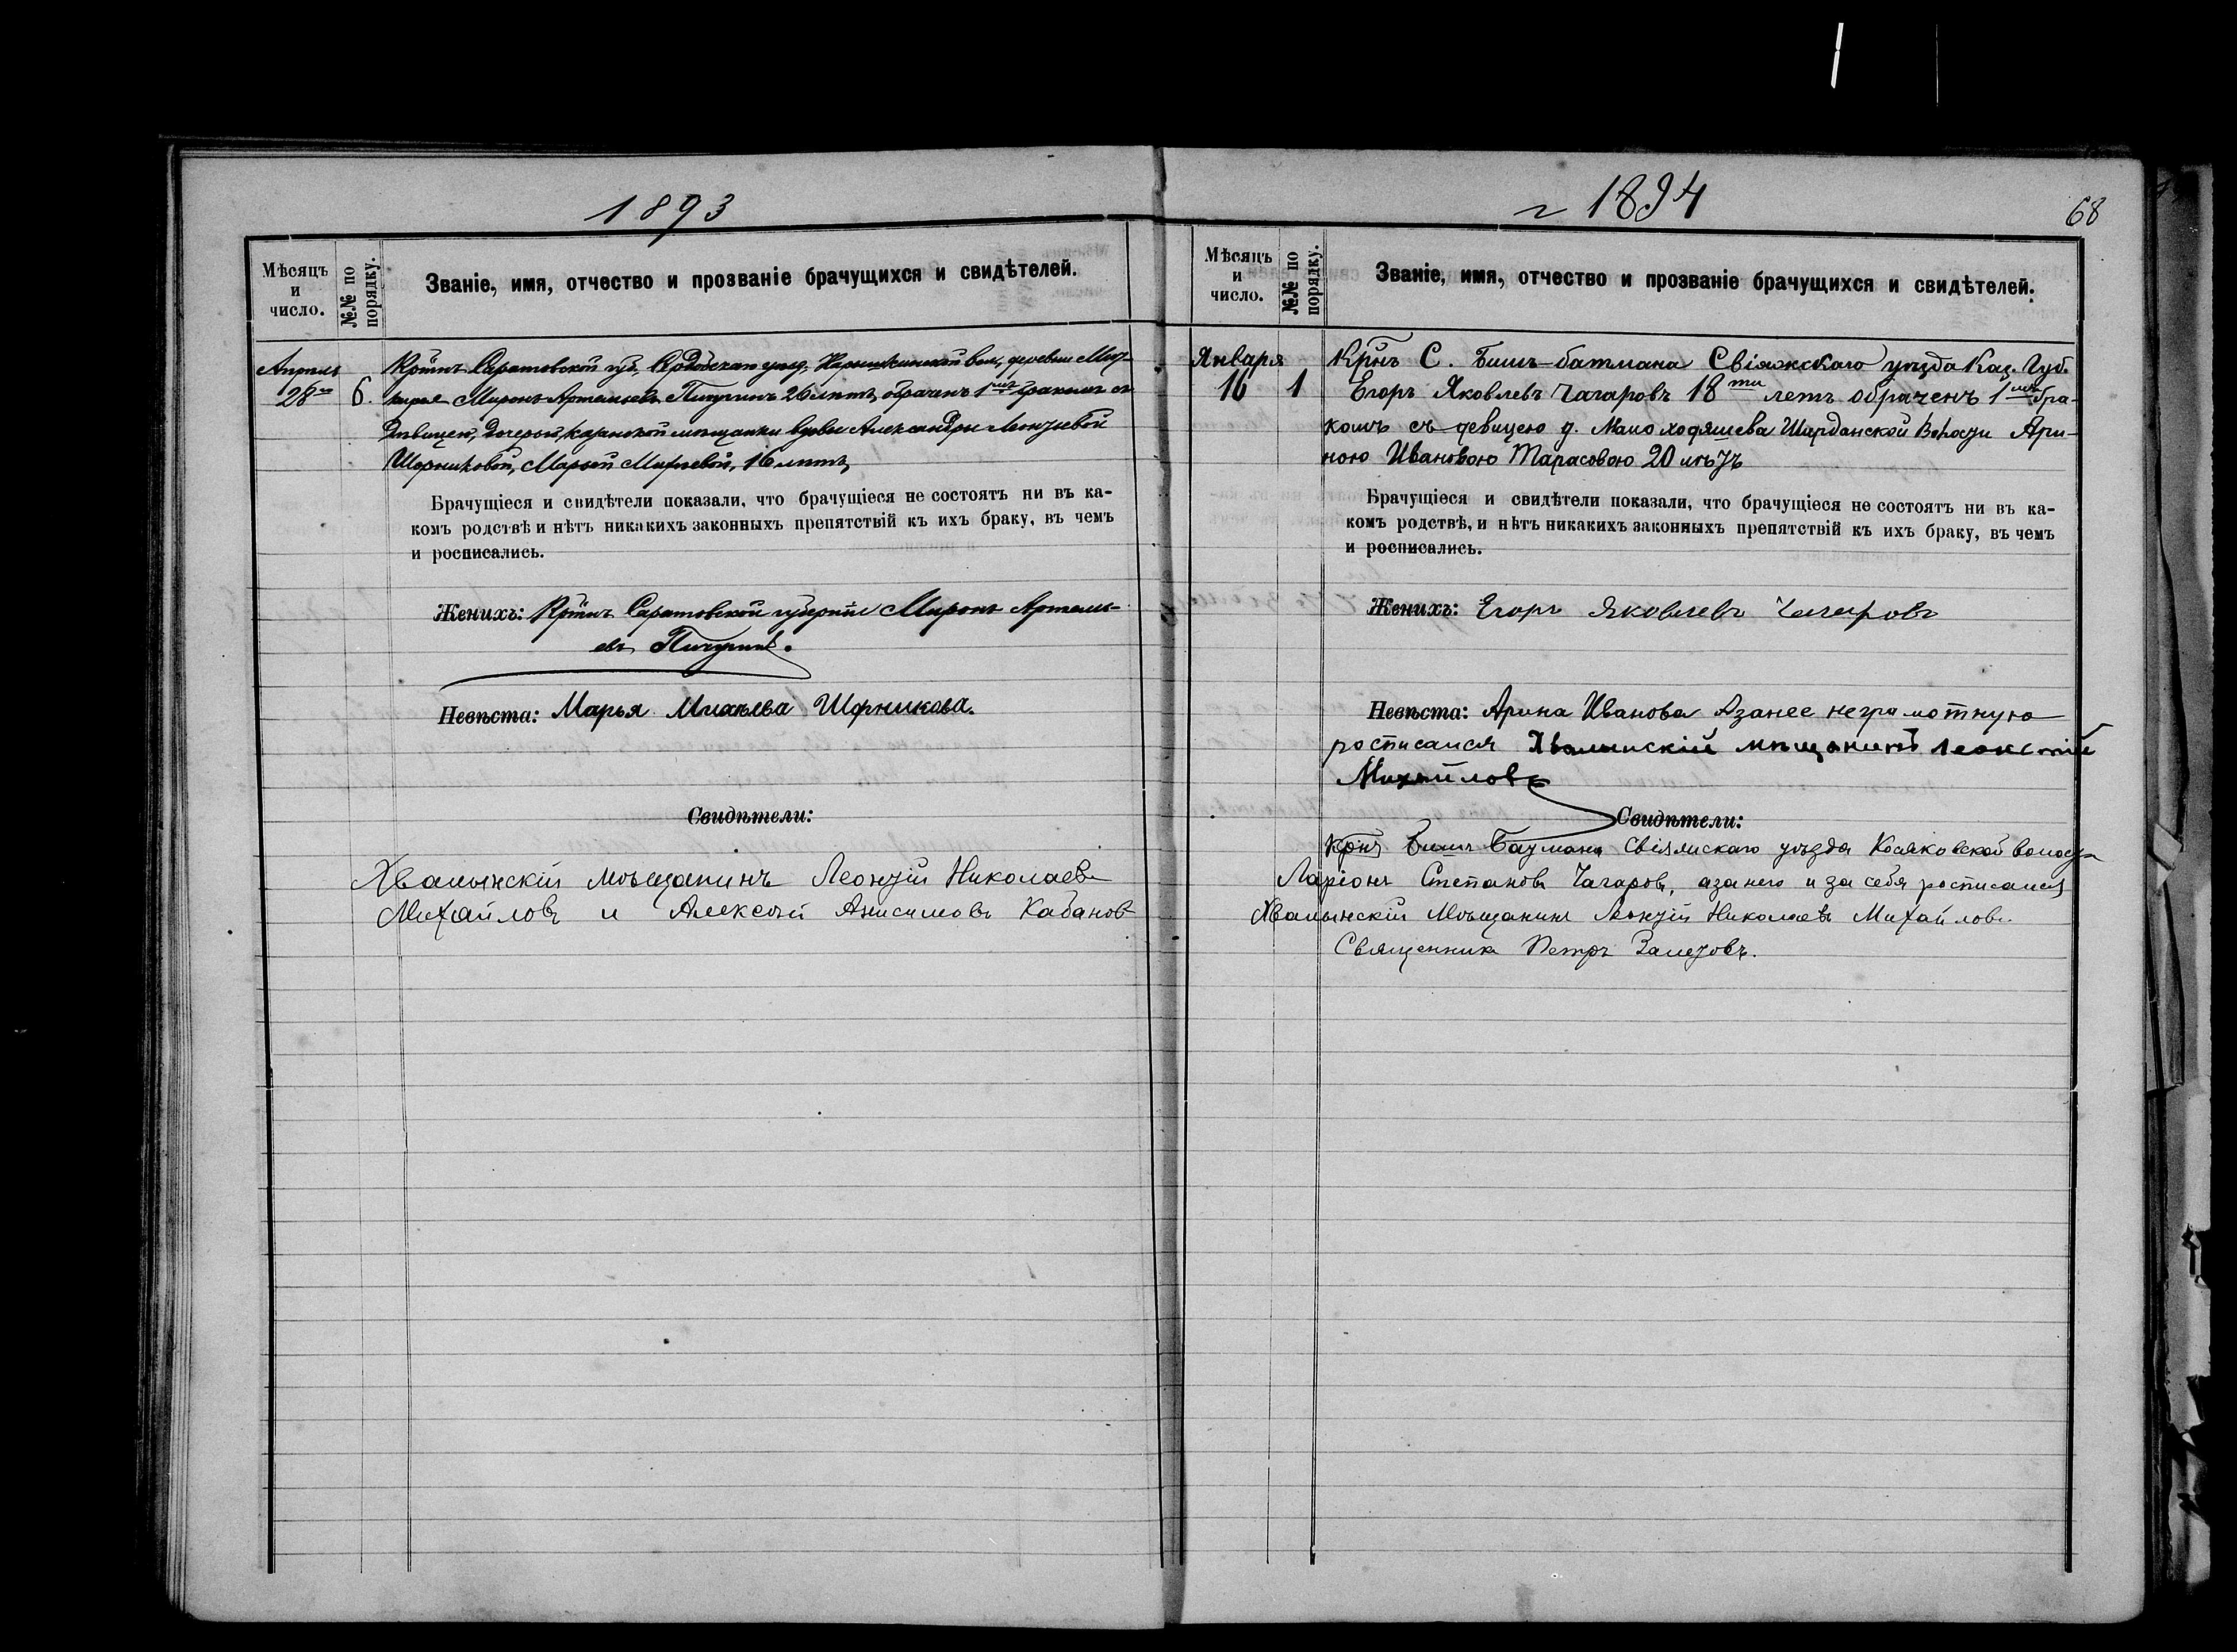 1893
Мѣсяцъ и число.
№№ по порядку.
Званіе, имя, отчество и прозваніе брачущихся и свидѣтелей.
Апрѣль 28го
6.
Кртнъ Саратовской губ., Сердобскаго уѣзд. Нарышкинской вол., деревни
Миронъ Артемьевъ Пичугинъ 26 лѣтъ, обраченъ 1мъ бракомъ съ
дѣвицей, дочерью казанской мѣщанки вдовы Александры Леонтьевой
Шорниковой, Марьей Михеевой, 16 лѣтъ,
Брачущіеся и свидѣтели показали, что брачущіеся не состоятъ ни въ ка-
комъ родствѣ и нѣтъ никакихъ законныхъ препятствій къ ихъ браку, въ чемъ
и росписались.
Женихъ: Кртнъ Саратовской губерніи Миронъ Артемь-
евъ Пичугинъ.
Невѣста: Марья Михѣева Шорникова.
Свидѣтели:
Хвалынскій мѣщанинъ Леонтій Николаевъ
Михайловъ и Алексѣй Анисимовъ Кабановъ
г 1894
68
Мѣсяцъ и число.
№№ по порядку.
Званіе, имя, отчество и прозваніе брачущихся и свидѣтелей.
Января 16
1
Крнъ С. Бишъ-батмана Свіяжскаго уѣзда Каз. Губ.
Егоръ Яковлевъ Чагаровъ 18ти летъ обраченъ 1мъ бра-
комъ съ девицею д. Мало ходяшева Ширданской Волости Ари-
ною Ивановою Тарасовою 20 лѣтъ
Брачущіеся и свидѣтели показали, что брачущіеся не состоятъ ни въ ка-
комъ родствѣ, и нѣтъ никакихъ законныхъ препятствій къ ихъ браку, въ чемъ
и росписались.
Женихъ: Егоръ Яковлевъ Чагаровъ
Невѣста: Арина Иванова Азанее неграмотную
росписался Хвалынскій мѣщанинъ Леонтій
Михайловъ
Свидѣтели:
Крнъ Бишъ Батмана Свіяжскаго уѣзда Косяковской волости
Ларіонъ Степановъ Чагаровъ, азанего и за себя росписался
Хвалынскій Мѣщанинъ Леонтій Николаевъ Михайловъ.
Священникъ Петръ